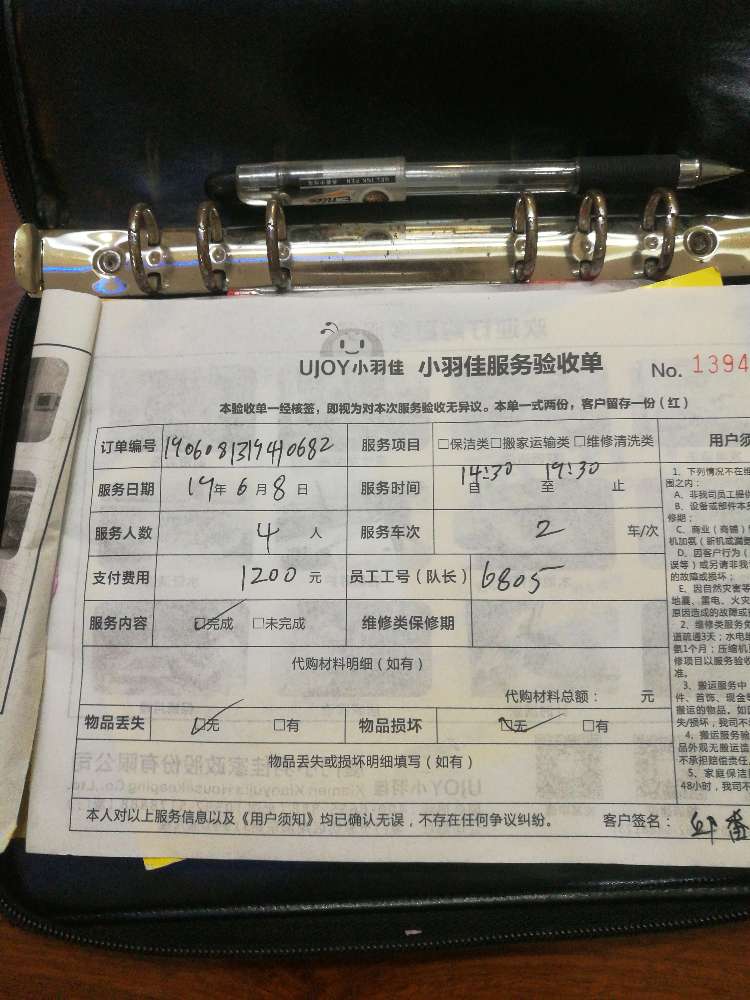 UJOY小羽佳 小羽佳服务验收单 No. 1394
本验收单一经核签，即视为对本次服务验收无异议。本单一式两份，客户留存一份（红）
订单编号 190608131941068​2 服务项目 □保洁类□搬家运输类□维修清洗类 用户须
服务日期 19年6月8日 服务时间 14:30自 至19:30止
服务人数 4人 服务车次 2 车/次
支付费用 1200元 员工工号（队长） 6805
服务内容 ☑完成 □未完成 维修类保修期
代购材料明细（如有）
代购材料总额： 元
物品丢失 ☑无 □有 物品损坏 ☑无 □有
物品丢失或损坏明细填写（如有）
本人对以上服务信息以及《用户须知》均已确认无误，不存在任何争议纠纷。 客户签名： 邱番
1、下列情况不在维
围之内：
A、非我司员工提供
B、设备或部件本身
修期；
C、商业（商铺）
机加氨（新机或漏
D、因客户行为（
误等）或另请非我
的故障或损坏；
E、因自然灾害等
地震、雷电、火灾
原因造成的故障或
2、维修类服务免
道疏通3天；水电维
氨1个月；压缩机
修项目以服务验收
准。
3、搬运服务中
件、首饰、现金等
搬运的物品。如因
失/损坏，我司不
4、搬运服务验
品外观无搬运造
不承担赔偿责任。
5、家庭保洁
48小时，我司不